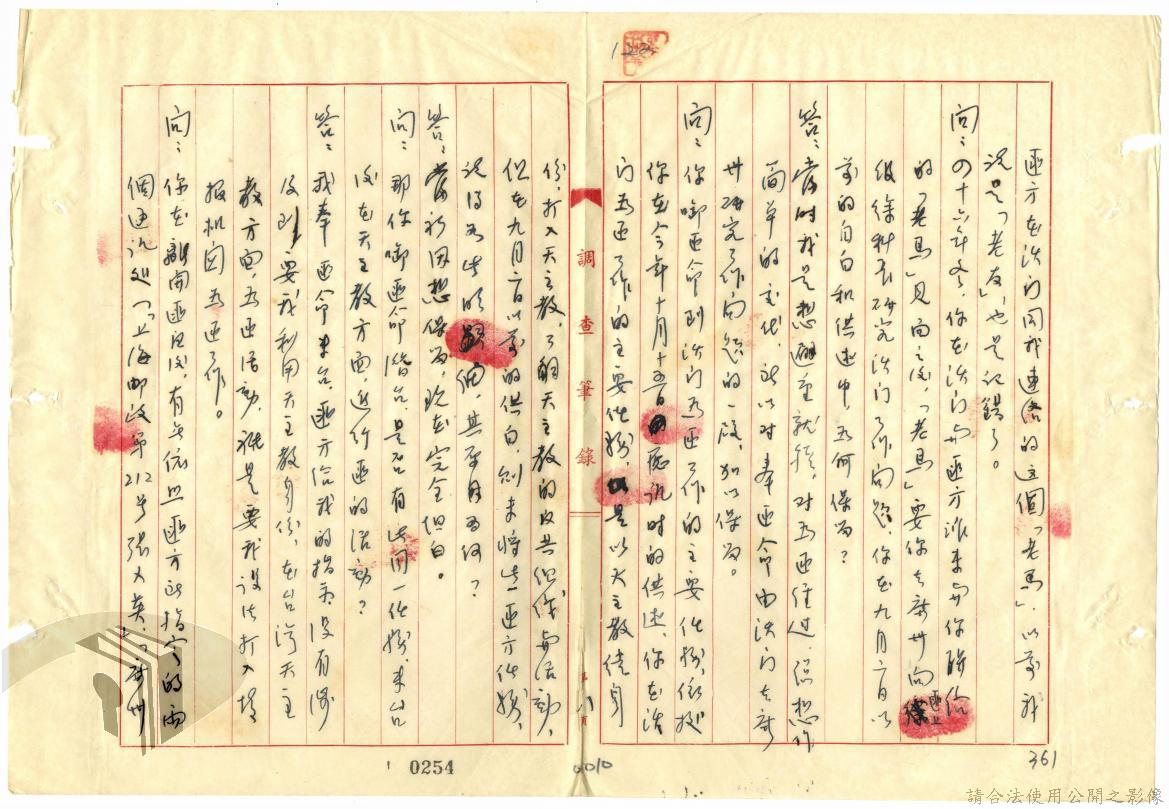 匪方在澳門同我連絡的這個「老馬」,以前我
說是「老友」,也是記錯了。
問:四十六年冬,你在澳門與匪方派來與你聯絡
的「老馬」見面之後,「老馬」要你去廣州向匪上
級徐科長研究澳門工作問題,你在九月六日以
前的自白和供述中,為何保留?
答:當時我是想避重就輕,對為匪經過,總想作
簡單的交代,所以對奉匪命由澳門去廣
州研究工作問題的一段,加以保留。
問:你啣匪命到澳門為匪工作的主要任務,依據
你在今年十月十五日 訊時的供述,你在澳
門為匪工作的主要任務,是以天主教徒身
調查筆錄
份,打入天主教,了解天主教的反共組織與活動,
但在九月六日以前的供白,創未將此一匪方任務,
說得如此明顯,其原因為何?
答:當初因想保留,現在完全坦白。
問:那你啣匪命潛台,是否有此同一任務,來台
後在天主教方面,進行匪的活動?
答:我奉匪命來台,匪方給我的指示,沒有談
及到要我利用天主教身份,在台灣天主
教方面,為匪活動,祇是要我設法打入情
報機關為匪工作。
問:你在離開匪區後,有無依照匪方所指定的兩
個通訊處「上海郵政第212號張大英」「廣州
0254
0010
361
請合法使用公開之影像